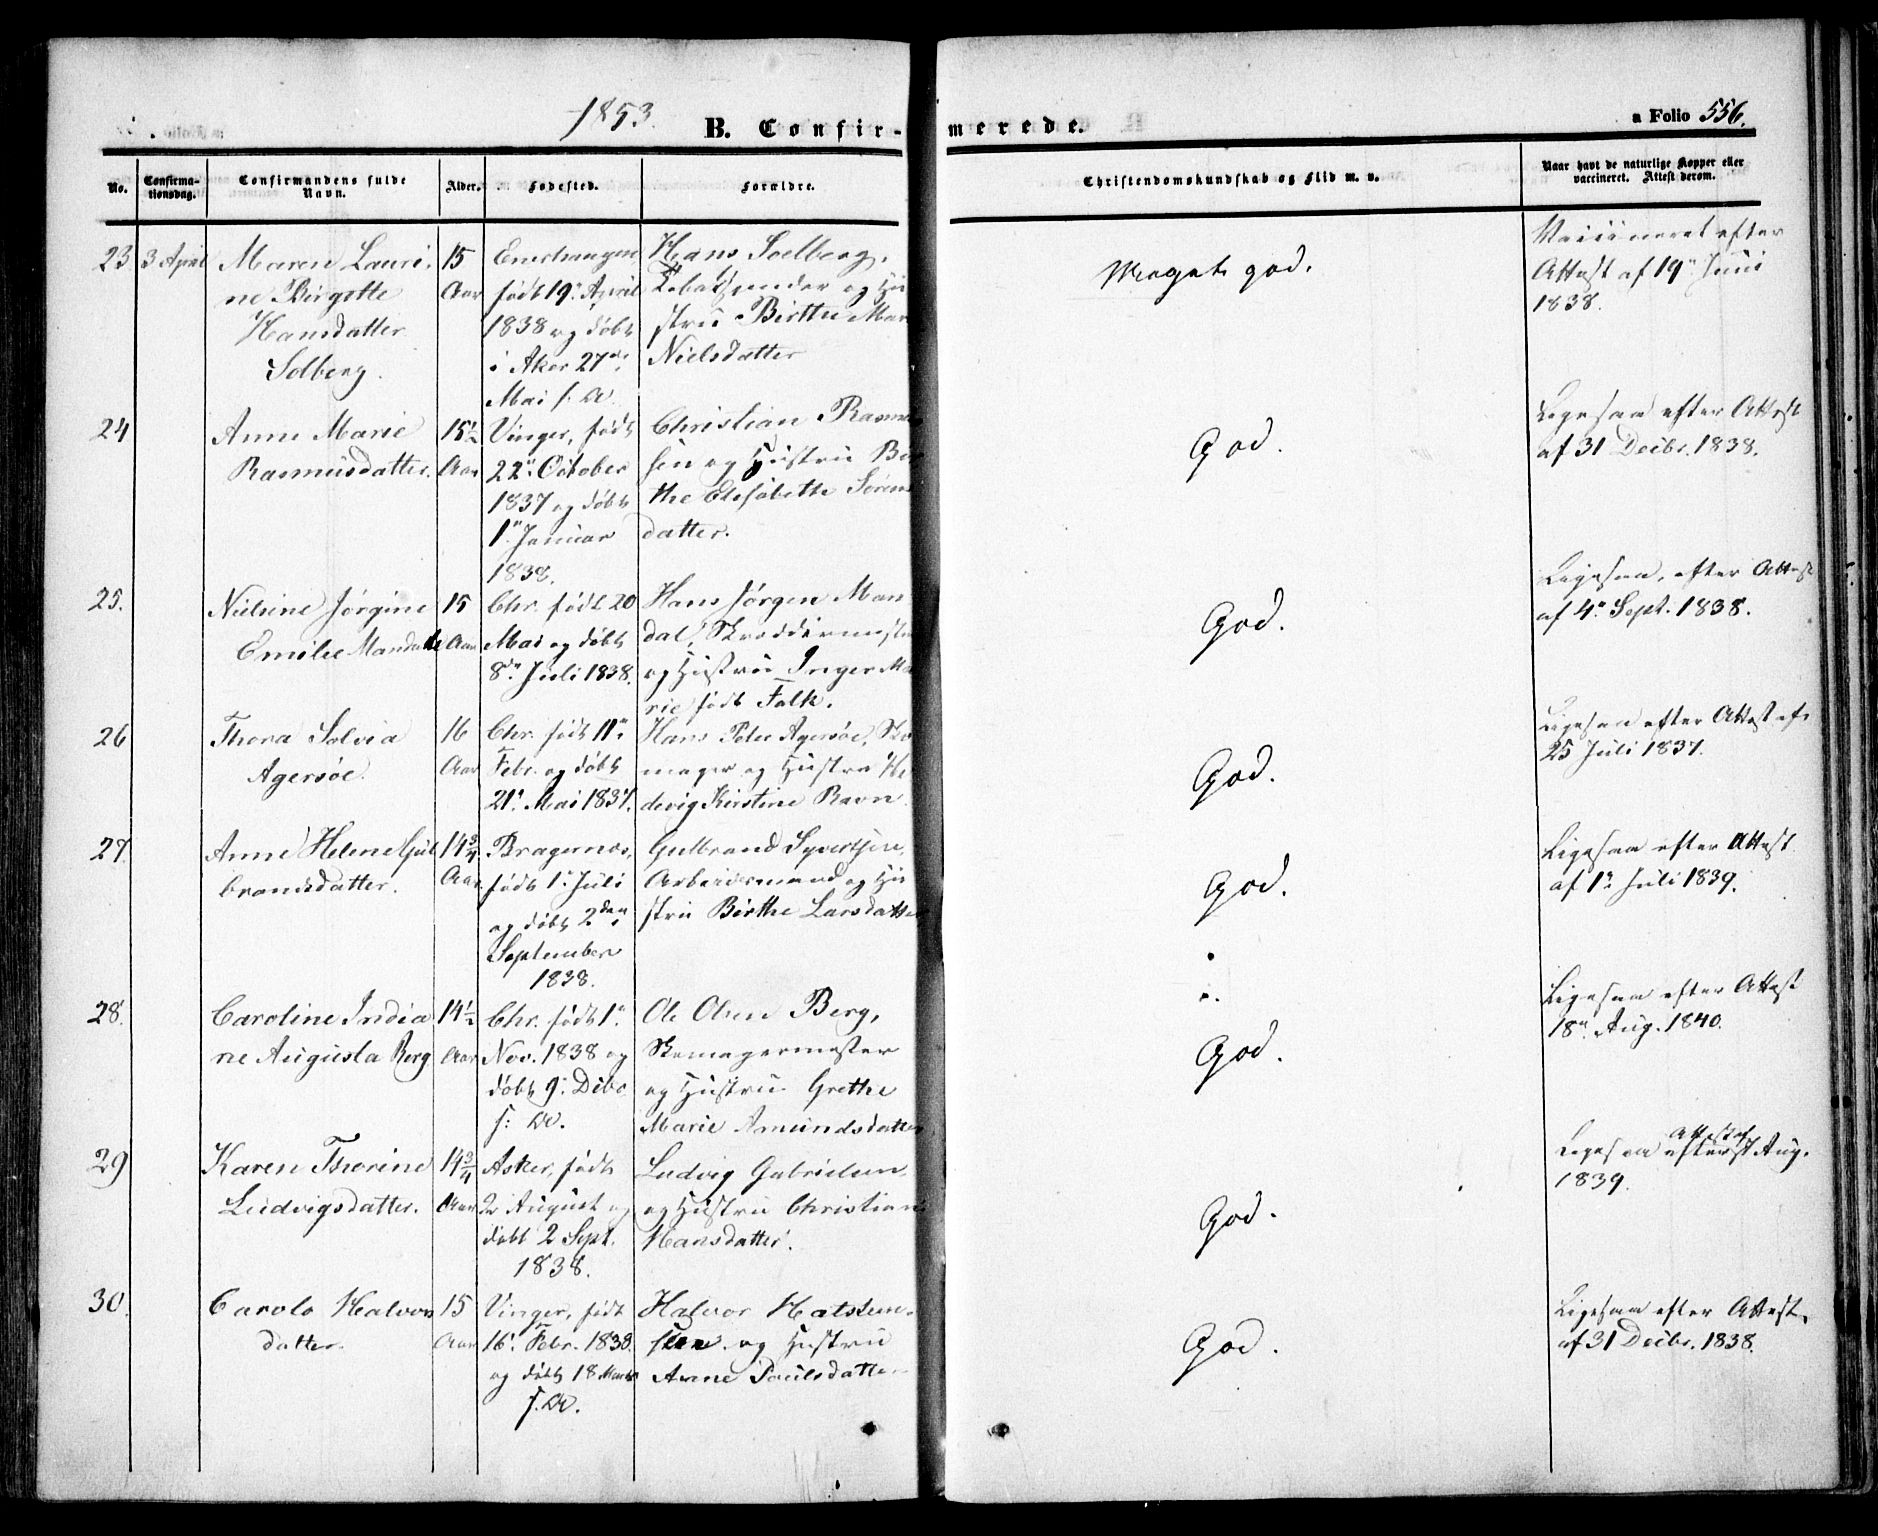 1853.
B. Confirmerede.
a Folio 556.
No.
Confirmationsdag.
Confirmandens fulde Navn.
Alder.
Fødested.
Forældre.
Christendomskundskab og Flid m. v.
Naar havt de naturlige Kopper eller vaccineret. Attest derom.
23
3 April
Maren Lauri-
ne Birgitte
Hansdatter
Solberg.
15
Aar
Enerhaugen
født 19. April
1838 og døbt
i Aker 27de
Mai s. A.
Hans Soelberg,
og Hu
stru Birthe Mar
Nielsdatter
Meget god.
Vaccineret efter
Attest af 19 Juni
1838.
24
Anne Marie
Rasmusdatter.
15½
Aar
Vinger, født
22. October
1837 og døbt
1. Januar
1838.
Christian Rasmu
sen og Hustru Bir
the Elisabethe Sørens
datter.
God.
Ligesaa efter Attest
af 31 Decbr. 1838.
25.
Nielsine Jørgine
Emilie Mandahl
15
Aar
Chr. født 20
Mai og døbt
8de Juli 1838.
Hans Jørgen Man
dal, Skreddermest
og Hustru Inger Ma
rie født Falk.
God.
Ligesaa, efter Attest
af 4. Sept. 1838.
26
Thora Solvia
Agersøe.
16
Aar
Chr. født 11.
Febr. og døbt
21. Mai 1837.
Hans Peter Agersøe, Sko
mager og Hustru He
devig Kirstine Ravn
God.
Ligesaa efter Attest af
25 Juli 1837.
27
Anne Helene Gul
brandsdatter.
14¾
Aar
Bragernæs,
født 1. Juli
og døbt 2den
September
1838.
Gulbrand Syvertsen,
Arbeidsmand og Hu
stru Birthe Larsdatter
God.
Ligesaa efter Attest
af 1. Juli 1839.
28.
Caroline India
ne Augusta Berg
14½
Aar
Chr. født 1.
Nov. 1838 og
døbt 9. Decbr
s. A.
Ole Olsen Berg,
Skomagermester
og Hustru Grethe
Marie Amundsdatter
God.
Ligesaa efter Attest
18. Aug. 1840.
29
Karen Thorine
Ludvigsdatter.
14¾
Aar
Asker, født
2 August og
døbt 2 Sept.
1838.
Ludvig Gabrielsen
og Hustru Christian
Hansdatter.
God.
Ligesaa efter Attest af
Aug.
1839.
30.
Carolo Halvors
datter.
15
Aar
Vinger, født
16. Febr. 1838.
og døbt 18 Marts
s. A.
Halvor Halsten
sen og Hustru
Anne Poulsdatter
God.
Ligesaa efter Attest
af 31 Decbr. 1838.